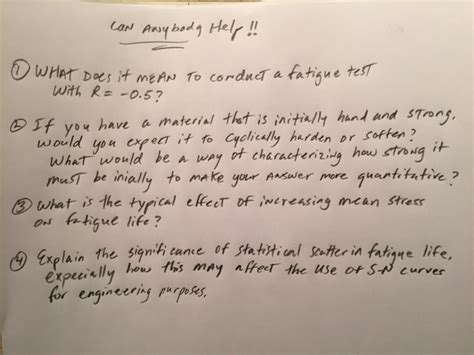 Can Anybody Help !!
① WHAT Does it mEAN To conduct a fatigue test
With R = -0.5?
② If you have a material that is initially hand and strong,
would you expect it to cyclically harden or soften?
What would be a way of characterizing how strong it
must be inially to make your answer more quantitative?
③ What is the typical effect of increasing mean stress
on fatigue life?
④ Explain the significance of statistical scatter in fatigue life,
especially how this may affect the use of S-N curves
for engineering purposes.